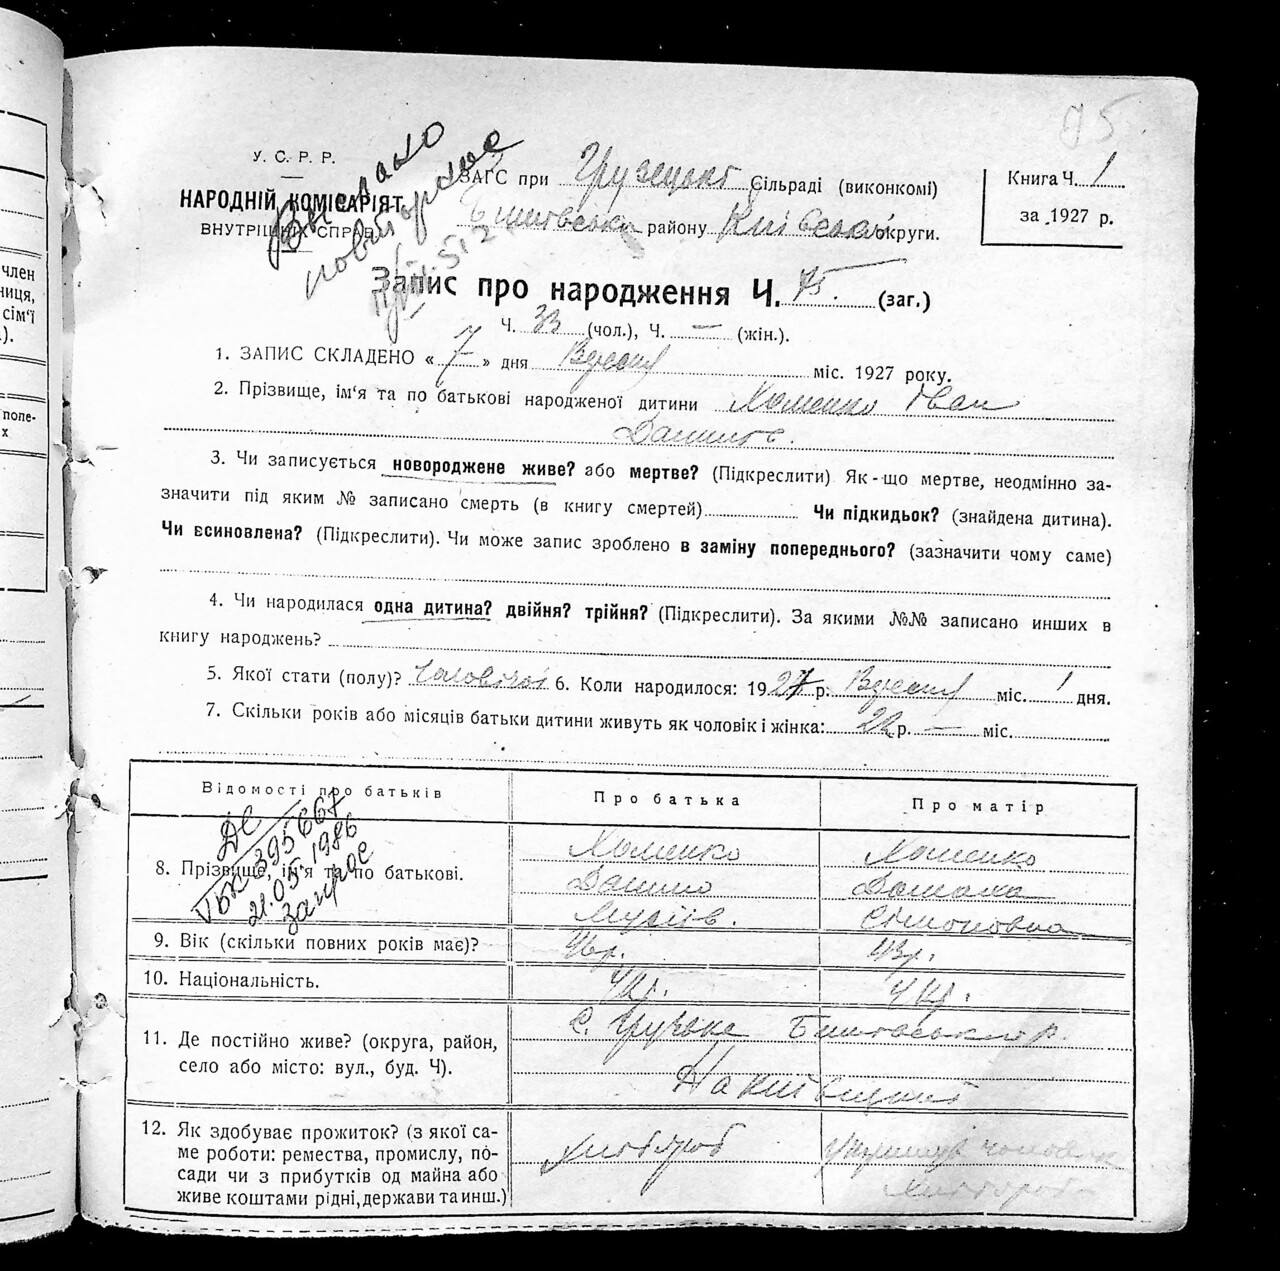 95.
У. С. Р. Р.
НАРОДНІЙ КОМІСАРІЯТ
ВНУТРІШНІХ СПРАВ
Видано
повторное
ЗАГС при Грузецькі Сільраді (виконкомі)
Бишівськи району Київської округи.
Книга Ч. 1
за 1927 р.
Запис про народження Ч. 75. (заг.)
Ч. 33 (чол.), Ч. — (жін.).
1. ЗАПИС СКЛАДЕНО « 7 » дня Вересня міс. 1927 року.
2. Прізвище, ім'я та по батькові народженої дитини Хоменко Іван
Данилов.
3. Чи записується новороджене живе? або мертве? (Підкреслити) Як-що мертве, неодмінно за-
значити під яким № записано смерть (в книгу смертей) Чи підкидьок? (знайдена дитина).
Чи всиновлена? (Підкреслити). Чи може запис зроблено в заміну попереднього? (зазначити чому саме)
4. Чи народилася одна дитина? двійня? трійня? (Підкреслити). За якими №№ записано инших в
книгу народжень?
5. Якої стати (полу)? Чоловічої 6. Коли народилося: 1927 р. Вересня міс. 1 дня.
7. Скільки років або місяців батьки дитини живуть як чоловік і жінка: 22 р. — міс.
Відомості про батьків
Про батька
Про матір
ДС
VБК 395667
21.05.1986
запрос
8. Прізвище, ім'я та по батькові.
Хоменко
Данило
Мусіїв.
Хоменко
Домаха
Сімоновна
9. Вік (скільки повних років має)?
46р.
43р.
10. Національність.
Укр.
Укр.
11. Де постійно живе? (округа, район,
село або місто: вул., буд. Ч).
с. Грузьке Бишівський р.
На Київщині
12. Як здобуває прожиток? (з якої са-
ме роботи: ремества, промислу, по-
сади чи з прибутків од майна або
живе коштами рідні, держави та инш.)
Хлібороб
чоловік
Хлібороб
член
ниця,
сім'ї
).
попе-
х